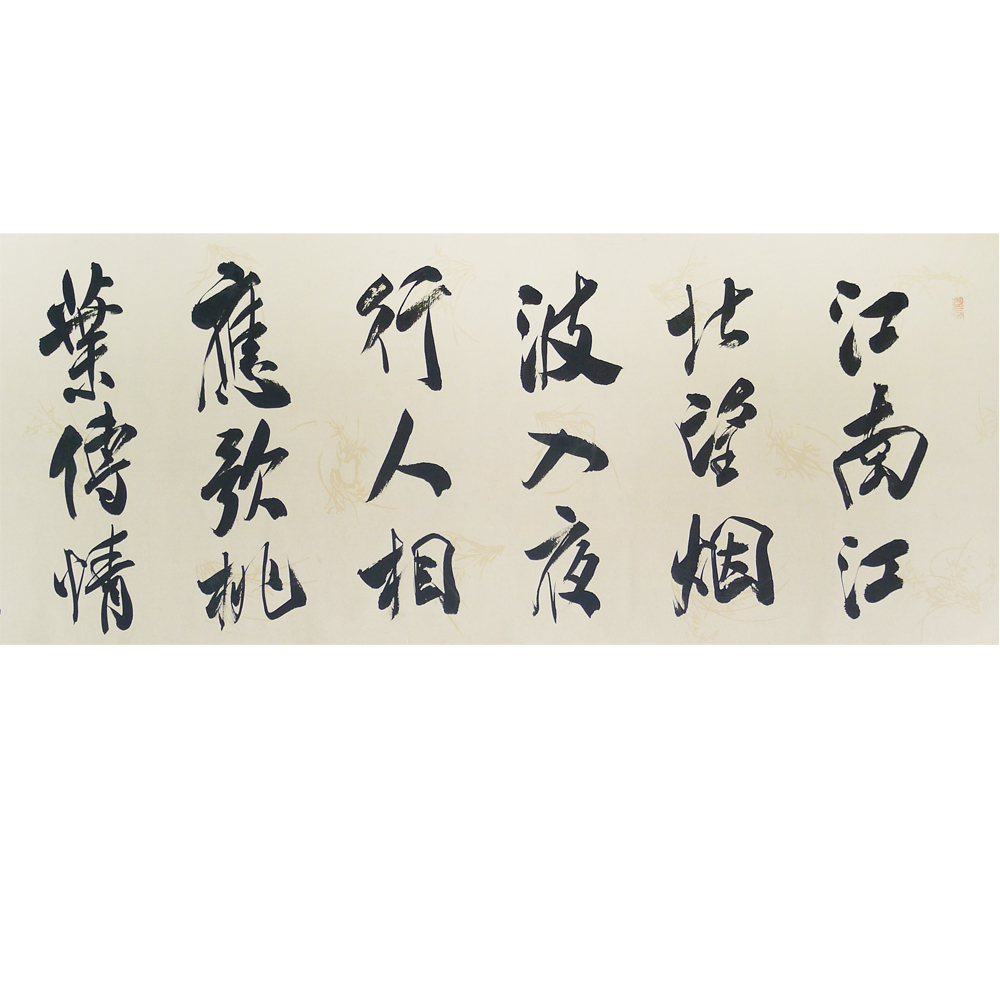 江南江
北望烟
波入夜
行人相
應歌桃
葉傳情